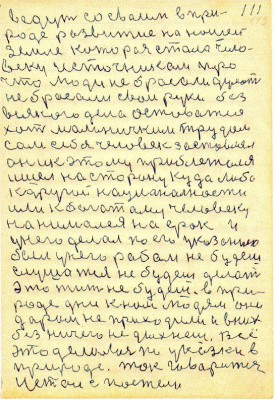 111
ведут со своим в при-
роде развитие на нашей
земле которая стала чело-
веку источником про
что люди не бросали думат
не бросали свои руки без
всякого дела оставатся
хотя маличким трудом
сам себя человек заставлял
он к этому приблежался
ишел на сторону куда либо
к другой национальности
или к богатому человеку
нанимался на срок и
унего делал по его указанию
были унего рабом не будеш
слушат не будеш делат
Это жит не будеш. в при-
роде дни к нам людям они
даром не приходили и в них
без ничего не дыхнеш. Всё
это делалось по указки в
природе. так говарится
Истом с постели